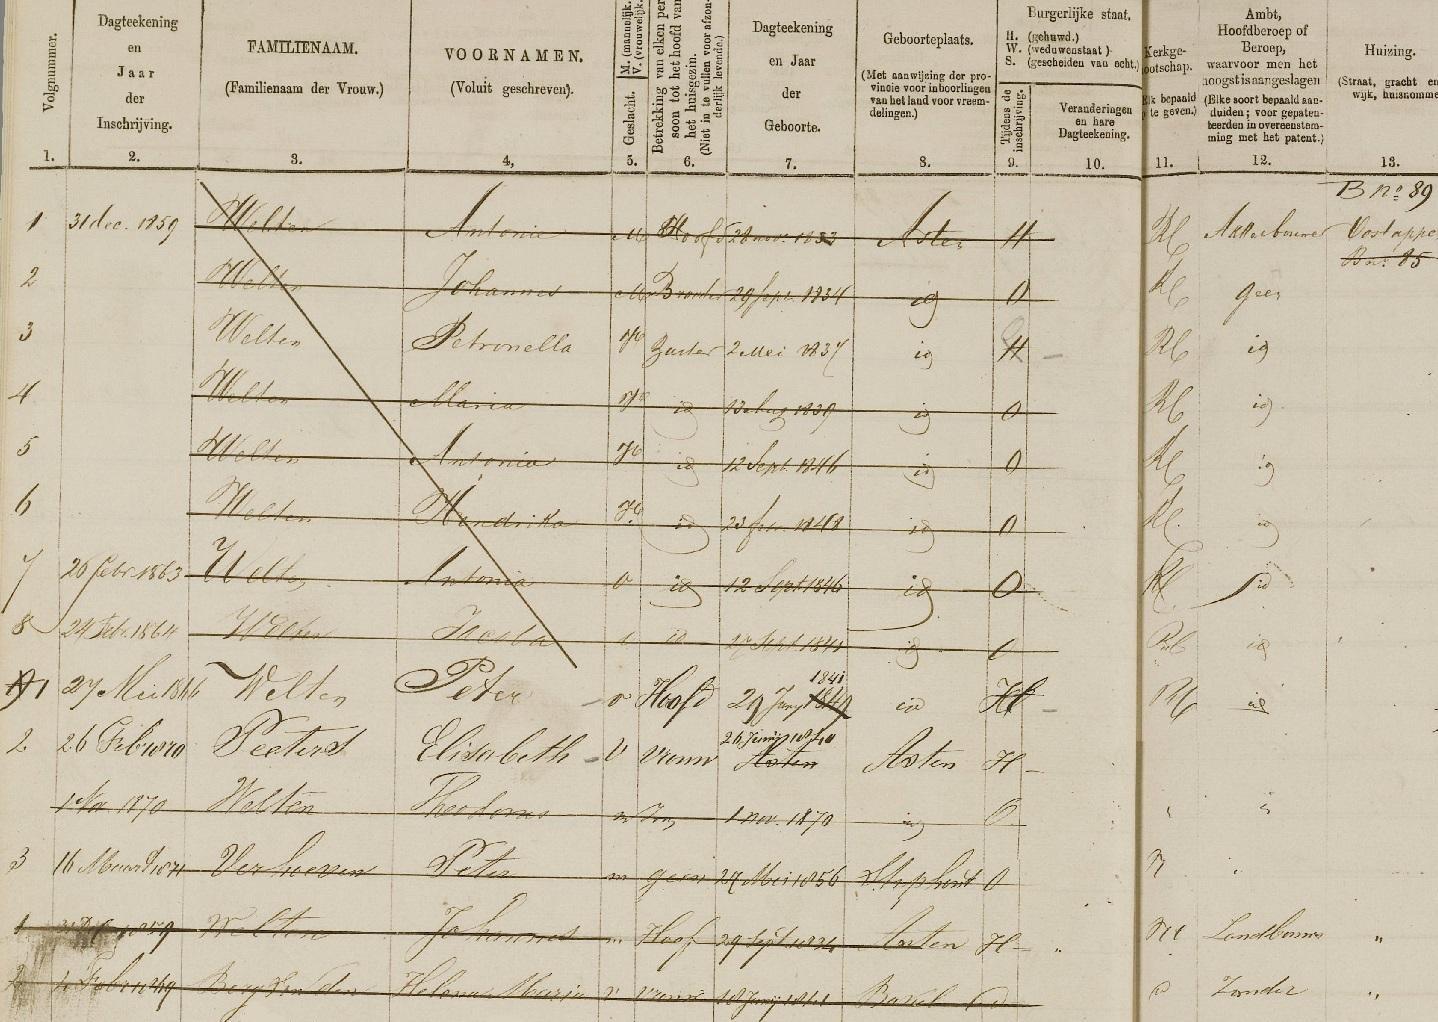 Volgnummer. 1.
Dagteekening en Jaar der Inschrijving. 2.
FAMILIENAAM. (Familienaam der Vrouw.) 3.
VOORNAMEN. (Voluit geschreven). 4,
Geslacht. M. (mannelijk. V. (vrouwelijk. 5.
Betrekking van elken per soon tot het hoofd van het huisgezin. (Niet in te vullen voor afzon- derlijk levende.) 6.
Dagteekening en Jaar der Geboorte. 7.
Geboorteplaats. (Met aanwijzing der pro- vincie voor inboorlingen van het land voor vreem- delingen.) 8.
Burgerlijke staat.
H. (gehuwd.)
W. (weduwenstaat)
S. (gescheiden van echt.)
Tijdens de inschrijving. 9.
Veranderingen en hare Dagteekening. 10.
Kerkge- ootschap. bepaald te geven.) 11.
Ambt, Hoofdberoep of Beroep, waarvoor men het hoogst is aangeslagen (Elke soort bepaald aan- duiden; voor gepaten- teerden in overeenstem- ming met het patent.) 12.
Huizing. (Straat, gracht en wijk, huisnomme 13.
B no 89
1 31 dec. 1859 Welten Antonie M Hoofd 28 nov. 1833 Asten H RC
Bno 85
2 Welten Johannes M Broeder 29 Sept. 1834 id O RC geen
3 Welten Petronella V Zuster 2 Mei 1837 id H RC id
4 Welten Maria V id 13 Aug 1839 id O RC id
5 Welten Antonia V id 12 Sept. 1846 id O RC id
6 Welten Hendrika V id 23 febr. 1848 id O RC id
7 26 febr. 1863 Welten Antonia V id 12 Sept 1846 id O RC id
8 24 Feb. 1864 Welten id id RC id
1 27 Mei 1866 Welten Peter Hoofd 29 Junij 1849 1841 id H id
2 26 Feb 1870 Peeters Elisabeth V vrouw 26 Junij Asten Asten H
1 Nov 1870 Welten Theodorus m Zn 1 nov. 1870 id O
3 16 Maart 1871 Verhoeven Peter m geen 27 Mei 1856 Stiphout O
1 1859 Welten Johannes m Hoof 29 Sept 1834 Asten H Landbouwer "
2 Berg van den Helena Maria v vrouw Bakel Zonder "